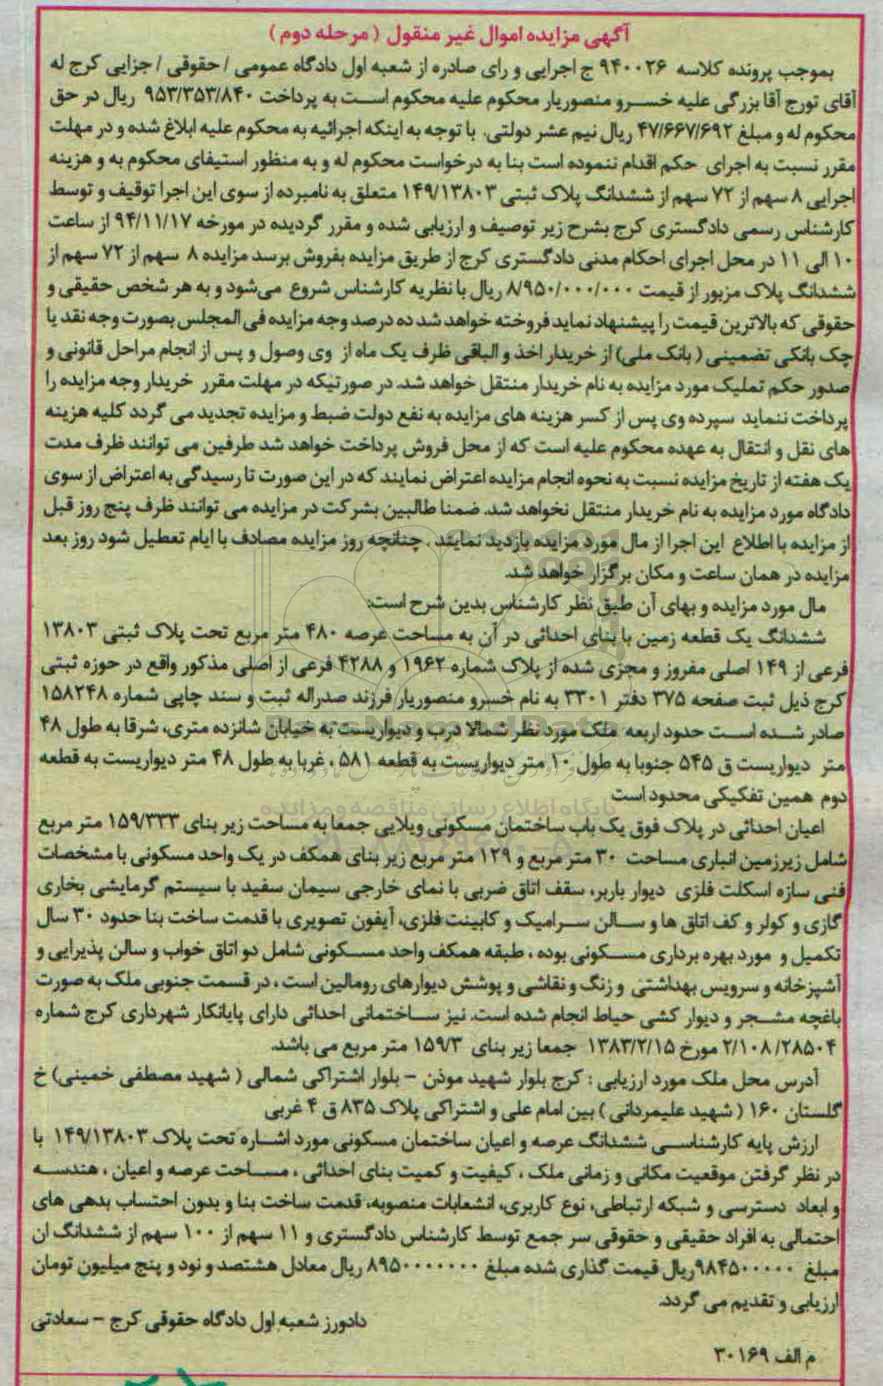 آگهی مزایده اموال غیر منقول ( مرحله دوم )
بموجب پرونده کلاسه ۹۴۰۰۲۶ ج اجرایی و رای صادره از شعبه اول دادگاه عمومی / حقوقی / جزایی کرج له
آقای تورج آقا بزرگی علیه خسرو منصوریار محکوم علیه محکوم است به پرداخت ۹۵۳/۳۵۳/۸۴۰ ریال در حق
محکوم له و مبلغ ۴۷/۶۶۷/۶۹۲ ریال نیم عشر دولتی. با توجه به اینکه اجرائیه به محکوم علیه ابلاغ شده و در مهلت
مقرر نسبت به اجرای حکم اقدام ننموده است بنا به درخواست محکوم له و به منظور استیفای محکوم به و هزینه
اجرایی ۸ سهم از ۷۲ سهم از ششدانگ پلاک ثبتی ۱۴۹/۱۳۸۰۳ متعلق به نامبرده از سوی این اجرا توقیف و توسط
کارشناس رسمی دادگستری کرج بشرح زیر توصیف و ارزیابی شده و مقرر گردیده در مورخه ۹۴/۱۱/۱۷ از ساعت
۱۰ الی ۱۱ در محل اجرای احکام مدنی دادگستری کرج از طریق مزایده بفروش برسد مزایده ۸ سهم از ۷۲ سهم از
ششدانگ پلاک مزبور از قیمت ۸/۹۵۰/۰۰۰/۰۰۰ ریال با نظریه کارشناس شروع می‌شود و به هر شخص حقیقی و
حقوقی که بالاترین قیمت را پیشنهاد نماید فروخته خواهد شد ده درصد وجه مزایده فی المجلس بصورت وجه نقد یا
چک بانکی تضمینی ( بانک ملی) از خریدار اخذ و الباقی ظرف یک ماه از وی وصول و پس از انجام مراحل قانونی و
صدور حکم تملیک مورد مزایده به نام خریدار منتقل خواهد شد. در صورتیکه در مهلت مقرر خریدار وجه مزایده را
پرداخت ننماید سپرده وی پس از کسر هزینه های مزایده به نفع دولت ضبط و مزایده تجدید می گردد کلیه هزینه
های نقل و انتقال به عهده محکوم علیه است که از محل فروش پرداخت خواهد شد طرفین می توانند ظرف مدت
یک هفته از تاریخ مزایده نسبت به نحوه انجام مزایده اعتراض نمایند که در این صورت تا رسیدگی به اعتراض از سوی
دادگاه مورد مزایده به نام خریدار منتقل نخواهد شد. ضمنا طالبین بشرکت در مزایده می توانند ظرف پنج روز قبل
از مزایده با اطلاع این اجرا از مال مورد مزایده بازدید نمایند . چنانچه روز مزایده مصادف با ایام تعطیل شود روز بعد
مزایده در همان ساعت و مکان برگزار خواهد شد.
مال مورد مزایده و بهای آن طبق نظر کارشناس بدین شرح است:
ششدانگ یک قطعه زمین با بنای احداثی در آن به مساحت عرصه ۴۸۰ متر مربع تحت پلاک ثبتی ۱۳۸۰۳
فرعی از ۱۴۹ اصلی مفروز و مجزی شده از پلاک شماره ۱۹۶۲ و ۴۲۸۸ فرعی از اصلی مذکور واقع در حوزه ثبتی
کرج ذیل ثبت صفحه ۳۷۵ دفتر ۳۳۰۱ به نام خسرو منصوریار فرزند صدراله ثبت و سند چاپی شماره ۱۵۸۲۴۸
صادر شده است حدود اربعه ملک مورد نظر شمالا درب و دیواریست به خیابان شانزده متری، شرقا به طول ۴۸
متر دیواریست ق ۵۴۵ جنوبا به طول ۱۰ متر دیواریست به قطعه ۵۸۱ ، غربا به طول ۴۸ متر دیواریست به قطعه
دوم همین تفکیکی محدود است
اعیان احداثی در پلاک فوق یک باب ساختمان مسکونی ویلایی جمعا به مساحت زیر بنای ۱۵۹/۳۳۳ متر مربع
شامل زیرزمین انباری مساحت ۳۰ متر مربع و ۱۲۹ متر مربع زیر بنای همکف در یک واحد مسکونی با مشخصات
فنی سازه اسکلت فلزی دیوار باربر، سقف اتاق ضربی با نمای خارجی سیمان سفید با سیستم گرمایشی بخاری
گازی و کولر و کف اتاق ها و سالن سرامیک و کابینت فلزی، آیفون تصویری با قدمت ساخت بنا حدود ۳۰ سال
تکمیل و مورد بهره برداری مسکونی بوده ، طبقه همکف واحد مسکونی شامل دو اتاق خواب و سالن پذیرایی و
آشپزخانه و سرویس بهداشتی و زنگ و نقاشی و پوشش دیوارهای رومالین است ، در قسمت جنوبی ملک به صورت
باغچه مشجر و دیوار کشی حیاط انجام شده است. نیز ساختمانی احداثی دارای پایانکار شهرداری کرج شماره
۲/۱۰۸/۲۸۵۰۴ مورخ ۱۳۸۳/۲/۱۵ جمعا زیر بنای ۱۵۹/۳ متر مربع می باشد.
آدرس محل ملک مورد ارزیابی : کرج بلوار شهید موذن – بلوار اشتراکی شمالی ( شهید مصطفی خمینی) خ
گلستان ۱۶۰ ( شهید علیمردانی ) بین امام علی و اشتراکی پلاک ۸۳۵ ق ۴ غربی
ارزش پایه کارشناسی ششدانگ عرصه و اعیان ساختمان مسکونی مورد اشاره تحت پلاک ۱۴۹/۱۳۸۰۳ با
در نظر گرفتن موقعیت مکانی و زمانی ملک ، کیفیت و کمیت بنای احداثی ، مساحت عرصه و اعیان ، هندسه
و ابعاد دسترسی و شبکه ارتباطی، نوع کاربری، انشعابات منصوبه، قدمت ساخت بنا و بدون احتساب بدهی های
احتمالی به افراد حقیقی و حقوقی سر جمع توسط کارشناس دادگستری و ۱۱ سهم از ۱۰۰ سهم از ششدانگ ان
مبلغ ۹۸۴۵۰۰۰۰۰ریال قیمت گذاری شده مبلغ ۸۹۵۰۰۰۰۰۰۰ ریال معادل هشتصد و نود و پنج میلیون تومان
ارزیابی و تقدیم می گردد.
دادورز شعبه اول دادگاه حقوقی کرج – سعادتی
م الف ۳۰۱۶۹